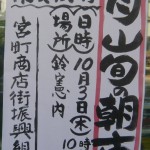 月山旬の朝市
日時 10月3日(木) 10時
場所 鈴憲内
宮町商店街振興組